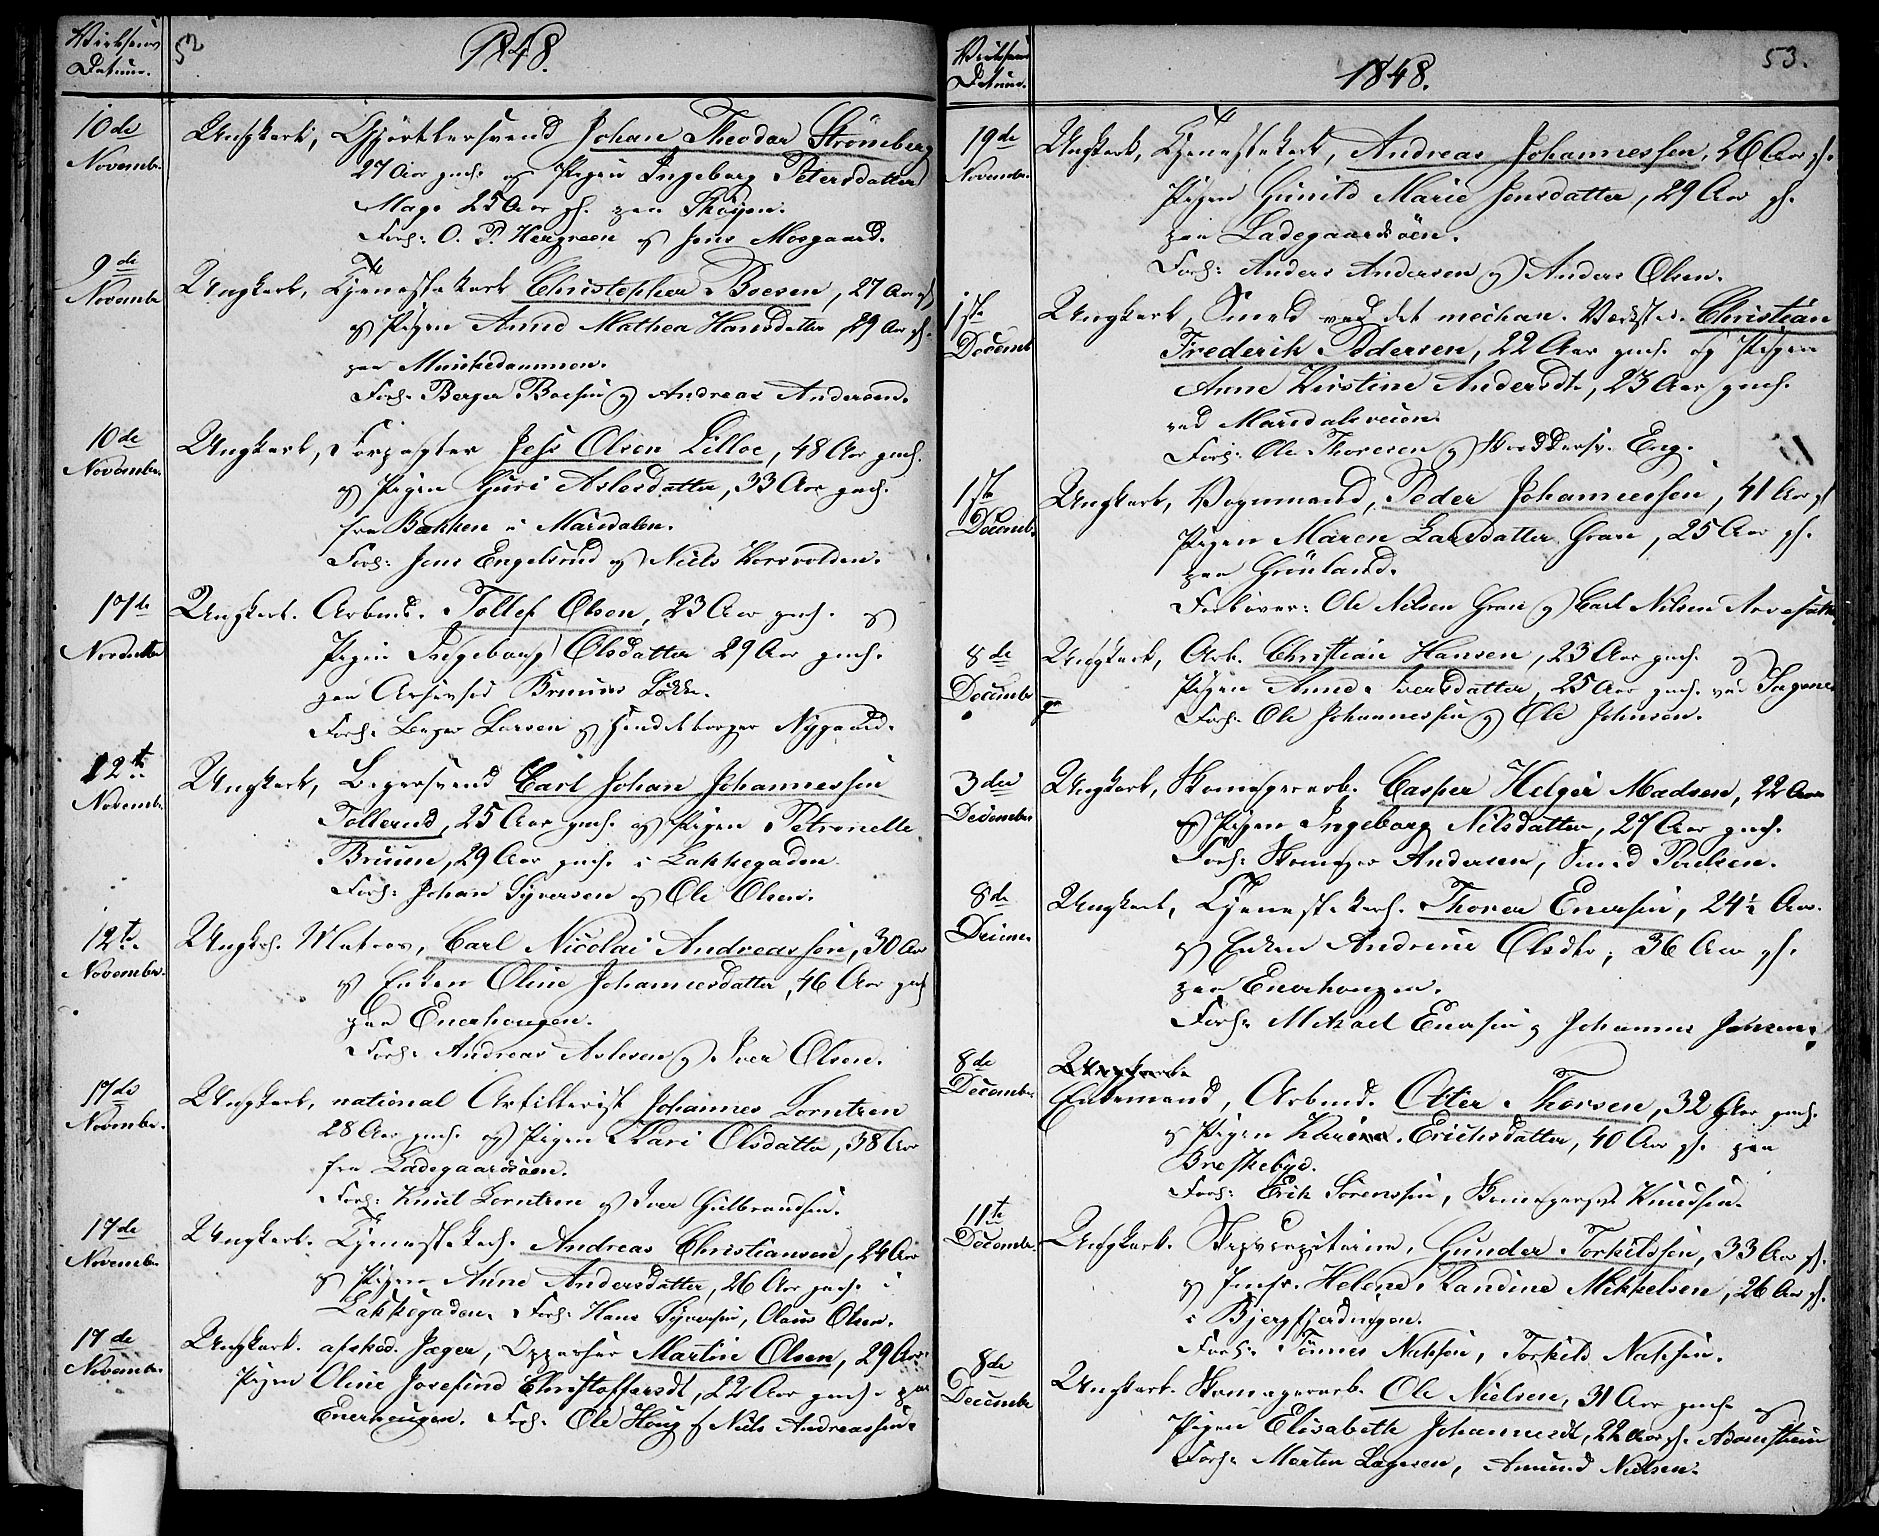 Virksens Datum.
52
1848.
10de November
Ungkarl, Gjørtlersvend Johan Theodor Strömberg
27 Aar gmh. og Pigen Ingeborg Petersdatter
Mago 25 Aar gh. paa Skøyen.
Forl: O. P. Hergreen og Jens Mosgaard.
9de November
Ungkarl, Tjenestekarl Christopher Boesen, 27 Aar gh
og Pigen Anne Mathea Hansdatter, 29 Aar gh.
paa Munkedammen.
Forl: Berger Boesen og Andreas Andersen.
10de November
Ungkarl, Forpagter Jess Olsen Lilloe, 48 Aar gmh.
og Pigen Guri Aslesdatter, 33 Aar gmh.
fra Bakken i Maridalen.
Forl: Jens Engelsrud og Niels Korsvolden.
17de November
Ungkarl. Arbmd. Tollef Olsen, 23 Aar gmh. og
Pigen Ingeborg Olsdatter 29 Aar gmh.
paa Bruuns Løkke.
Forl: Larsen og Nygaard.
12te November
Ungkarl, Bagersvend Carl Johan Johannessen
Tollerud, 25 Aar gmh. og Pigen Petronelle
Bruun, 29 Aar gmh. i Lakkegaden
Forl: Johan Syversen og Ole Olsen.
12te November
Ungkrl. Matros, Carl Nicolai Andreassen, 30 Aar
og Enken Oline Johannesdatter, 46 Aar gmh
paa Enerhougen.
Forl: Andreas Aslesen og Iver Olsen.
17de November
Ungkarl, national Artillerist Johannes Lorntzen
28 Aar gmh. og Pigen Kari Olsdatter, 38 Aar
fra Ladegaardsøen.
Forl: Knud Lorntzen og Iver Gulbrandsen.
17de November
Ungkarl. Tjenestekarl. Andreas Christiansen, 24 Aar
og Pigen Anne Andersdatter, 26 Aar gmh. i
Lakkegaden. Forl: Hans Syversen, Olaus Olsen.
17de November
Ungkarl. afsked. Jæger, Oppasser Martin Olsen, 29 Aar
Pigen Oline Josefine Christoffersdt, 22 Aar gmh. paa
Enerhougen. Forl: Ole Houg og Niels Andreassen.
Virksens Datum.
1848.
53.
19de November
Ungkarl, Tjenestekarl, Andreas Johannessen, 26 Aar gh.
Pigen Gunild Marie Jensdatter, 29 Aar gh.
paa Ladegaardsøen.
Forl: Anders Andersen og Anders Olsen.
1ste Decemb
Ungkarl, Smed ved det mechan. Værksted. Christian
Frederik Pedersen, 22 Aar gmh. og Pigen
Anne Kirstine Andersdt., 23 Aar gmh.
ved Maridalsveien
Forl: Ole Thoresen og Skræddersv. Eng.
1ste Decemb.
Ungkarl, Vognmand, Peder Johannessen, 41 Aar gh
Pigen Maren Larsdatter Gran, 25 Aar gh.
paa Grönland.
Forlover: Ole Nilsen Gran og Carl Nilsen
8de Decembr
Ungkarl, Arb. Christian Hansen, 23 Aar gmh. og
Pigen Anne Iversdatter, 25 Aar gmh. ved Sagene
Forl: Ole Johannessen og Ole Johnsen.
3die December
Ungkarl, Skomagerarb. Casper Helger Madsen, 22 Aar
og Pigen Ingeborg Nilsdatter, 27 Aar gmh.
Forl: Skomager Andersen, Smed Poulsen.
8de Decemr
Ungkarl, Tjenestekarl. Thorer Enersen, 24½ Aar.
og Enken Andrine Olsdtr, 36 Aar gh.
paa Enerhougen.
Forl: Mikael Enersen og Johannes Jensen.
8de December
Ungkarl.
Enkemand, Arbmd. Otter Thorsen, 32 Aar gmh.
og Pigen Karine Erichsdatter, 40 Aar gh. paa
Breskeby.
Forl: Erik Sörenssen, Skomagersv. Knudsen.
11te Decembr
Ungkarl. Skipscapitaine, Gunder Torkildsen, 33 Aar gh.
og Jomfr. Helene Randine Mikkelsen, 26 Aar gh.
i Bjergfjerdingen.
Forl: Tönnes Natsen, Torkild Natsen.
8de Decembr
Ungkarl. Skomagerarb. Ole Nielsen, 31 Aar gmh. og
Pigen Elisabeth Johannesdt, 22 Aar gh. Adamstuen
Forl: Martin Lagesen, Amund Nielsen.